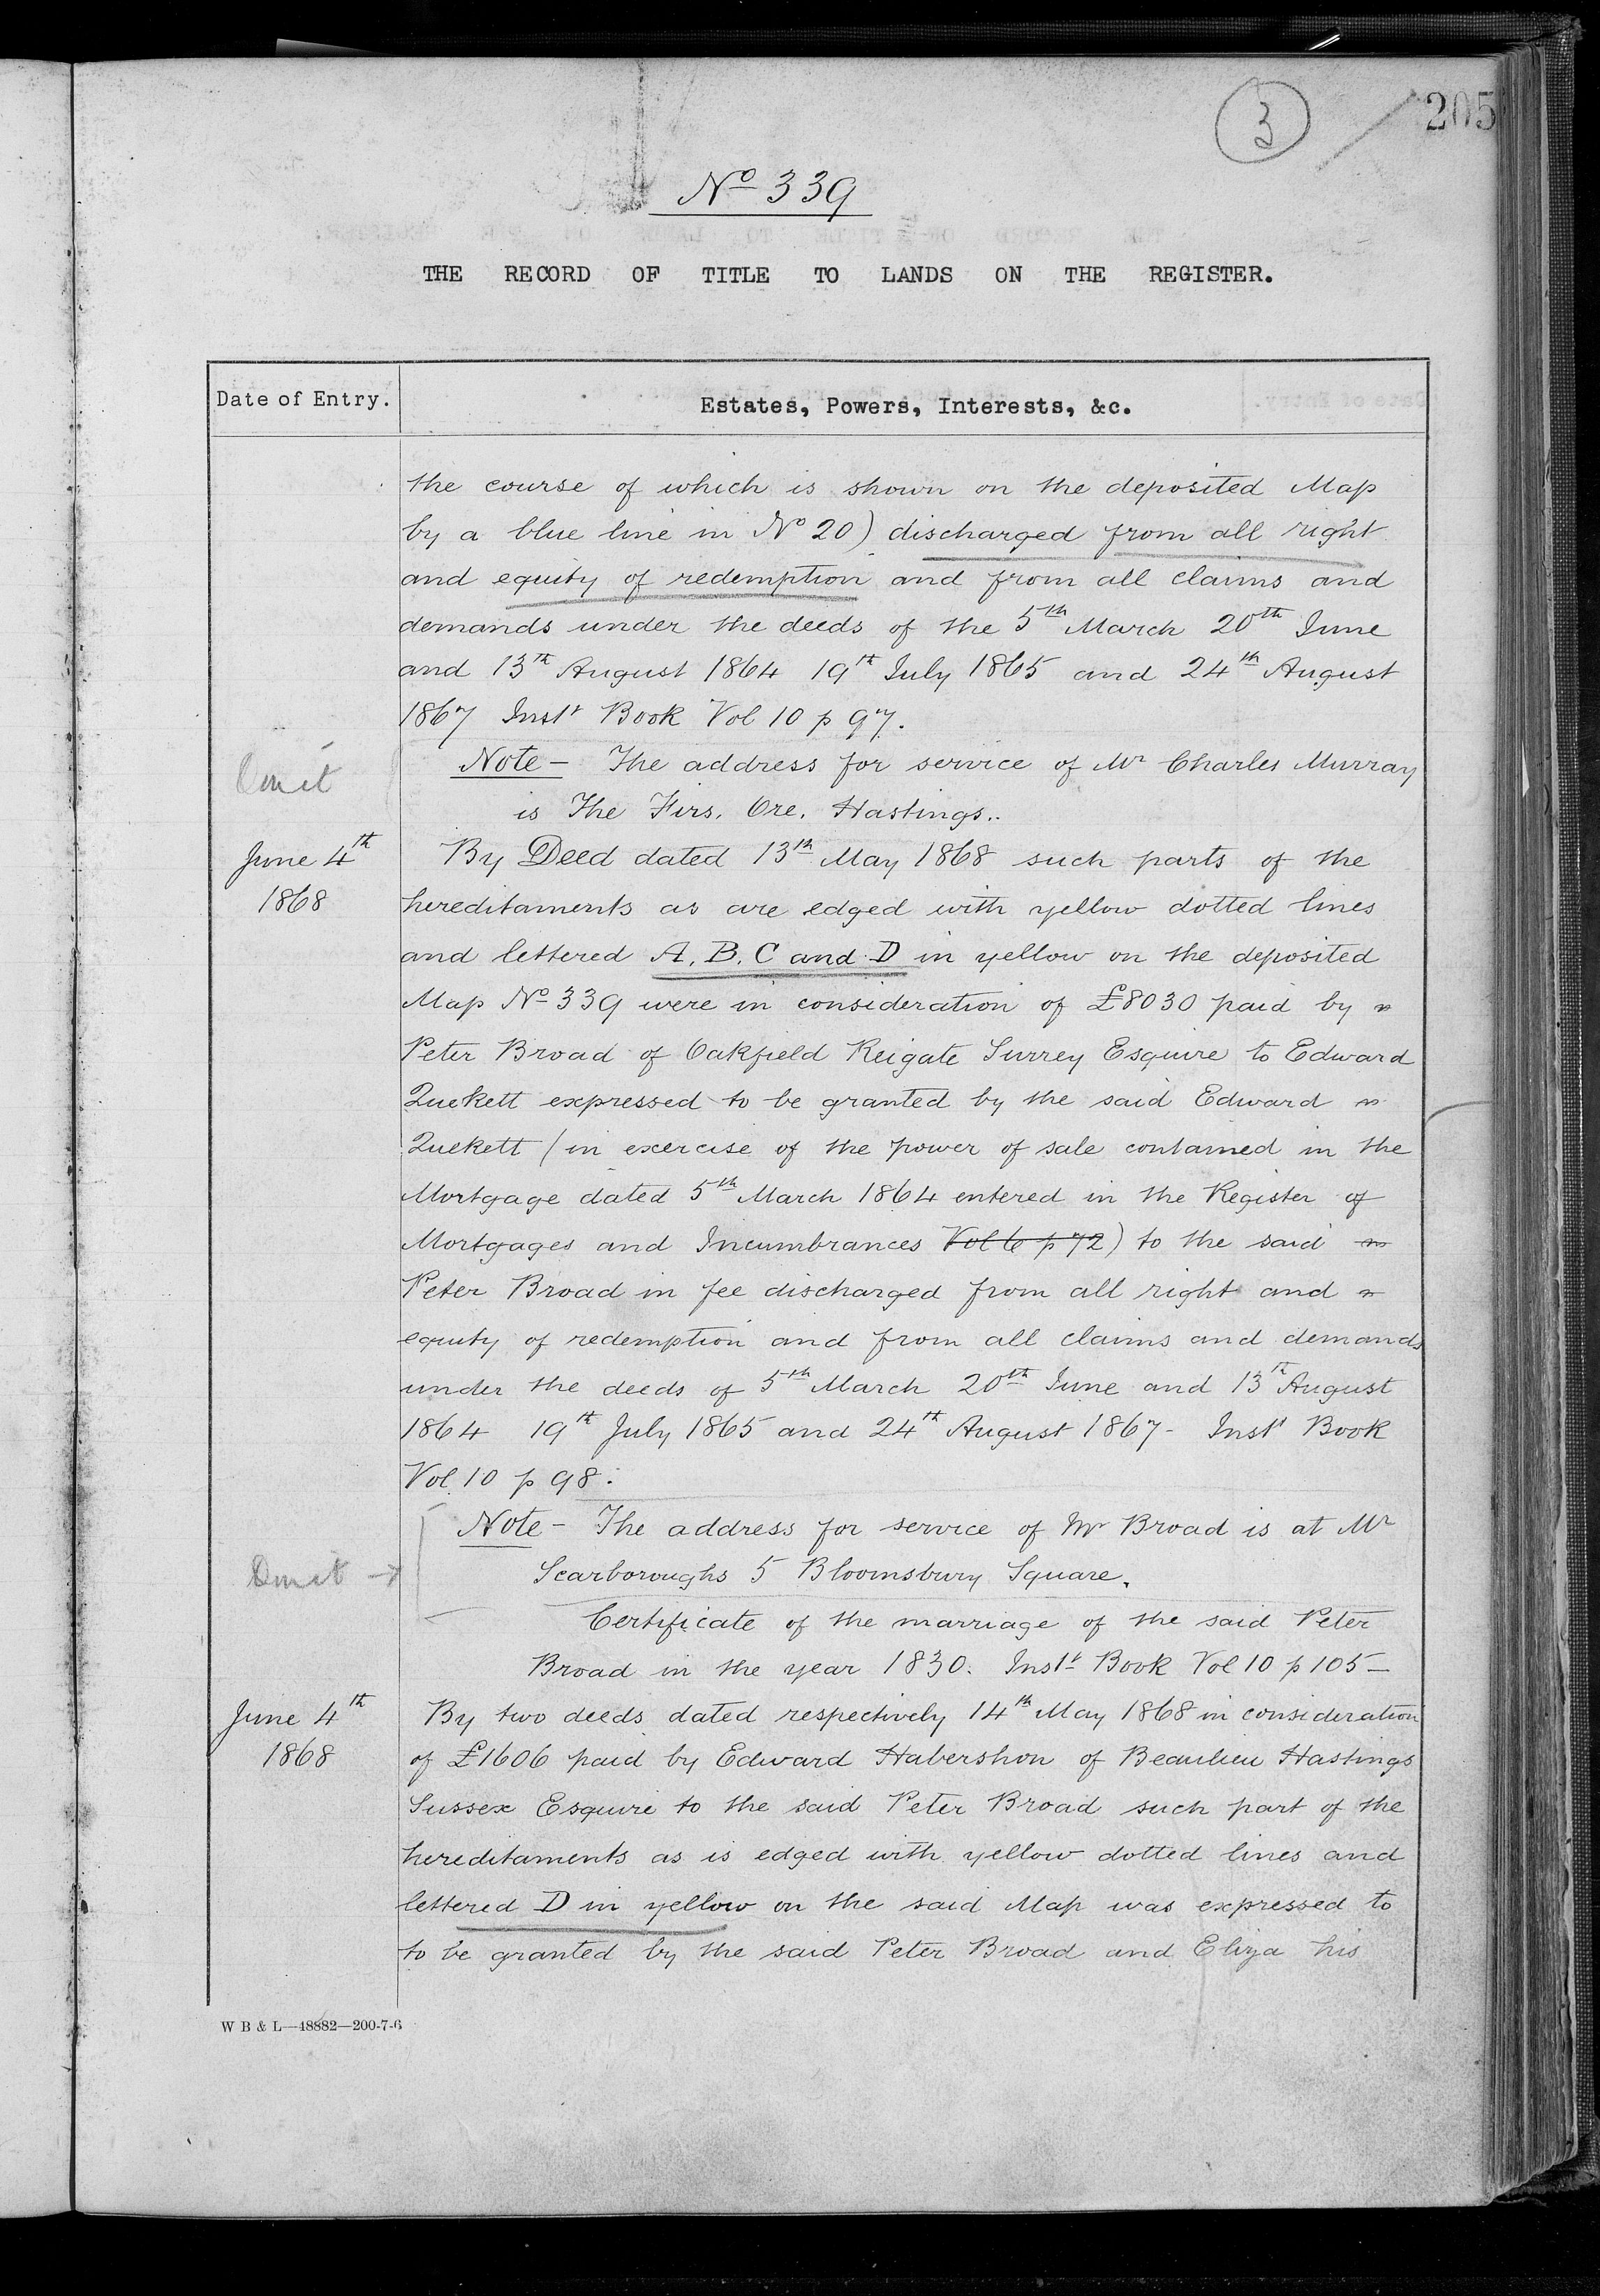 3
205
No 339
THE RECORD OF TITLE TO LANDS ON THE REGISTER.
Date of Entry.
Estates, Powers, Interests, &c.
the course of which is shown on the deposited Map
by a blue line in No 20) discharged from all right
and equity of redemption and from all claims and
demands under the deeds of the 5th March 20th June
and 13th August 1864 19th July 1865 and 24th August
1867 Instt Book Vol 10 p 97.
Omit
Note - The address for service of Mr Charles Murray
is The Firs. Ore. Hastings..
June 4th
1868
By Deed dated 13th May 1868 such parts of the
hereditaments as are edged with yellow dotted lines
and lettered A. B. C and D in yellow on the deposited
Map No 339 were in consideration of £8030 paid by
Peter Broad of Oakfield Reigate Surrey Esquire to Edward
Quekett expressed to be granted by the said Edward
Quekett (in exercise of the power of sale contained in the
Mortgage dated 5th March 1864 entered in the Register of
Mortgages and Incumbrances Vol 6 p 72) to the said
Peter Broad in fee discharged from all right and
equity of redemption and from all claims and demands
under the deeds of 5th March 20th June and 13th August
1864 19th July 1865 and 24th August 1867- Instt Book
Vol 10 p 98.
Omit →
Note - The address for service of Mr Broad is at Mr
Scarboroughs 5 Bloomsbury Square.
Certificate of the marriage of the said Peter
Broad in the year 1830. Instt Book Vol 10 p 105-
June 4th
1868
By two deeds dated respectively 14th May 1868 in consideration
of £1606 paid by Edward Habershon of Beaulieu Hastings
Sussex Esquire to the said Peter Broad such part of the
hereditaments as is edged with yellow dotted lines and
lettered D in yellow on the said Map was expressed to
to be granted by the said Peter Broad and Eliza his
W B & L—18882—200-7-6